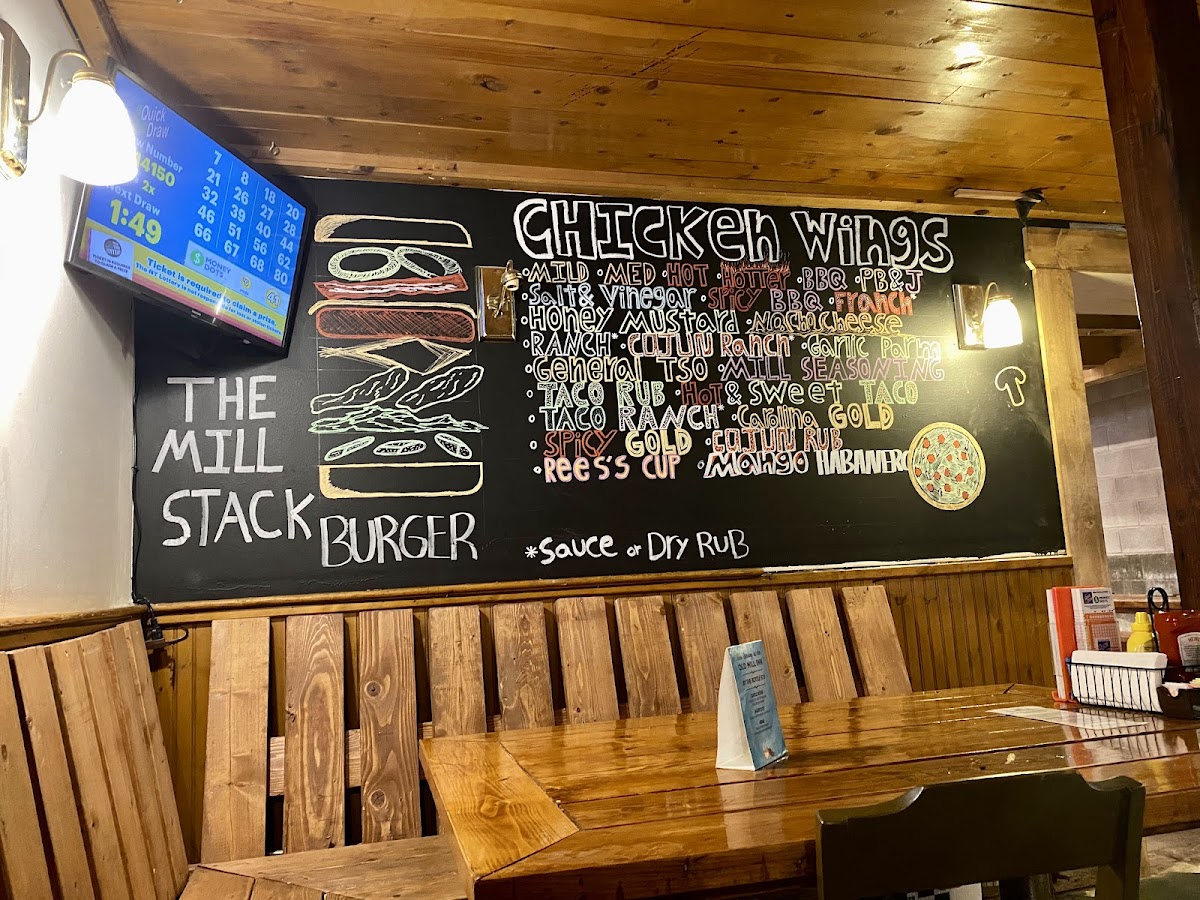 Quick
Draw
Number
4150
2x
Next Draw
1:49
7 8 18 20
21 26 27 28
32 39 40 44
46 51 56 62
66 67 68 80
MONEY
DOTS
Ticket is required to claim a prize.
The NY Lottery is not responsible
THE
MILL
STACK
BURGER
CHICKEN WINGS
·MILD ·MED ·HOT ·HOTTER ·BBQ ·PB&J
·Salt & Vinegar ·SPICY BBQ ·FRANCH*
·HONEY MUSTARD ·Nacho cheese
·RANCH* ·CAJUN RANCH* ·Garlic Parm
·General TSO ·MILL SEASONING
·TACO RUB ·HOT & SWEET TACO
·TACO RANCH* ·Carolina GOLD
·SPICY GOLD ·CAJUN RUB
·REES'S CUP ·Mango HABANERO
*Sauce or Dry RUB
OLD MILL INN